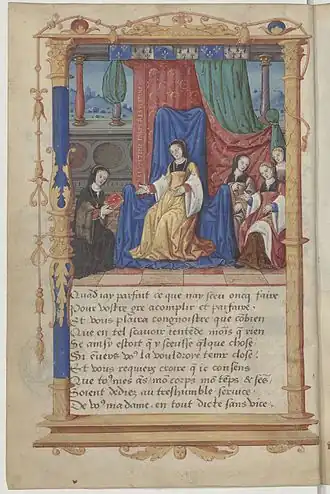 Quãd iay parfaict ce que nay sceu oncq faire
Pour vostre gre acomplir et parfaire.
Et vous plaira congnoistre que cõbien
Que en tel scauoir ientẽde moĩs q̃ rien
Si ay este si q̃ chose
Si ẽuers voꝰ la vouldroye tenir close.
Et vous requiers croire q̃ ie consens
Que toꝰ mes ãs mõ corps mõ tẽps & sẽs
Soient dediez au treshumble seruice.
De voꝰ ma dame en tout dicte sans vice.